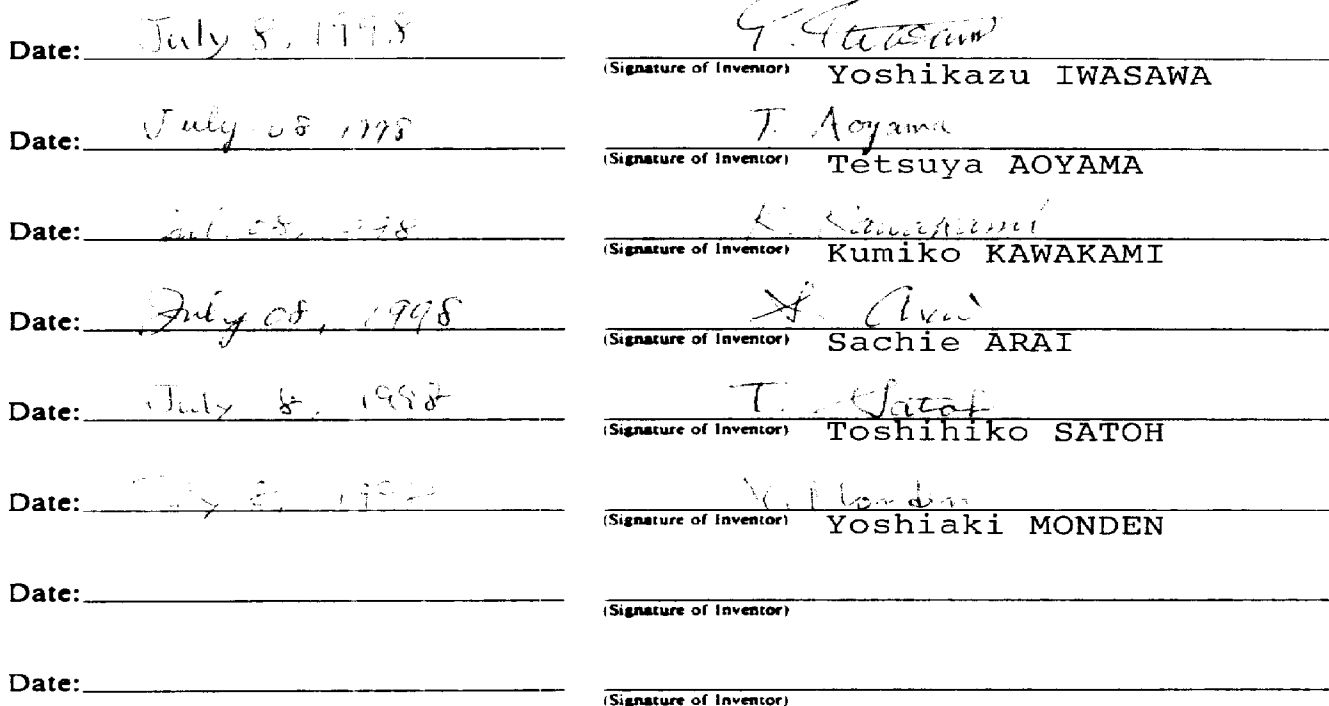 Date: July 8, 1998
(Signature of Inventor) Yoshikazu IWASAWA
Date: July 08 1998
T. Aoyama
(Signature of Inventor) Tetsuya AOYAMA
Date: Jul. 08, 1998
K. Kawakami
(Signature of Inventor) Kumiko KAWAKAMI
Date: July 08, 1998
S. Arai
(Signature of Inventor) Sachie ARAI
Date: July 8, 1998
T. Satoh
(Signature of Inventor) Toshihiko SATOH
Date: July 8, 1998
Y. Monden
(Signature of Inventor) Yoshiaki MONDEN
Date:
(Signature of Inventor)
Date:
(Signature of Inventor)